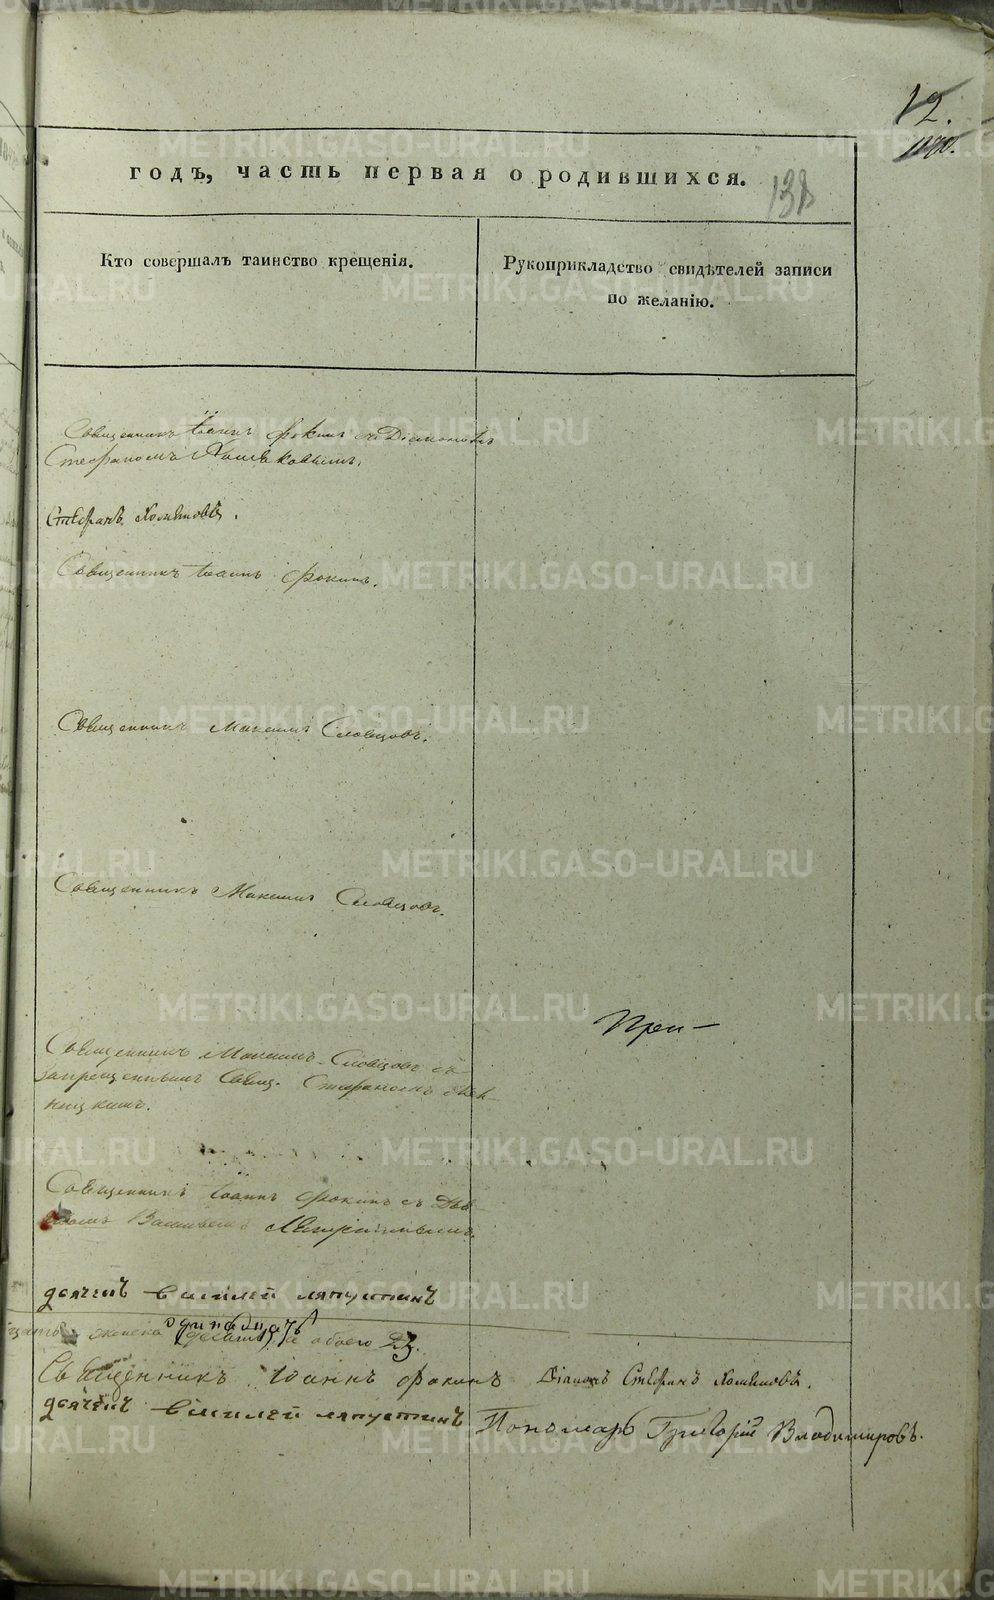 12.
138
годъ, часть первая о родившихся.
Кто совершалъ таинство крещенія.
Рукоприкладство свидѣтелей записи
по желанію.
Священникъ Іоаннъ Фокинъ съ Діакономъ
Стефаномъ Хомяковымъ.
Стефанъ Хомяковъ.
Священникъ Іоаннъ Фокинъ.
Священникъ Максимъ Словцовъ.
Священникъ Максимъ Словцовъ.
Священникъ Максимъ Словцовъ съ
запрещеннымъ Свящ. Стефаномъ
ницкимъ.
Священникъ Іоаннъ Фокинъ съ Дья-
Васильемъ Ляпустинымъ.
дьячекъ василей ляпустинъ
женска одинадцать а обоего 23.
Священникъ Іоаннъ Фокинъ Діаконъ Стефанъ Хомяковъ.
дьячекъ василей ляпустинъ Пономарь Григорій Владимировъ.
METRIKI.GASO-URAL.RU